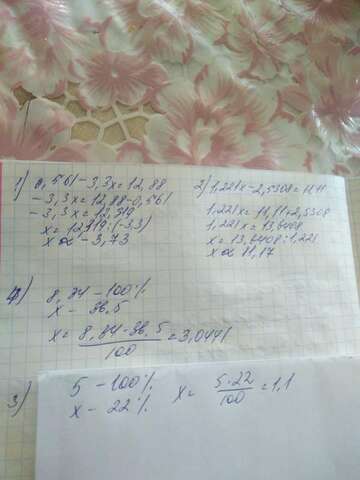 1) 0,561-3,3x=12,88
-3,3x=12,88-0,561
-3,3x=12,319
x=12,319:(-3,3)
x≈-3,73
2) 1,221x-2,5308=11,11
1,221x=11,11+2,5308
1,221x=13,6408
x=13,6408:1,221
x≈11,17
4) 8,84-100%
x-
x=
100
3) 5-100%
x-22%
x=5·22/100=1,1